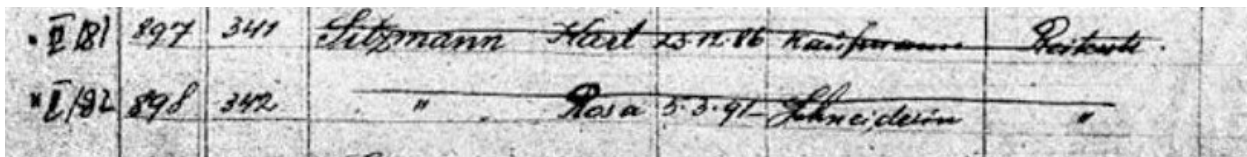 " II/81 897 341 Sitzmann Karl 25.12.86 Kaufmann
" II/82 898 342 " Rosa 5.3.91 Schneiderin "